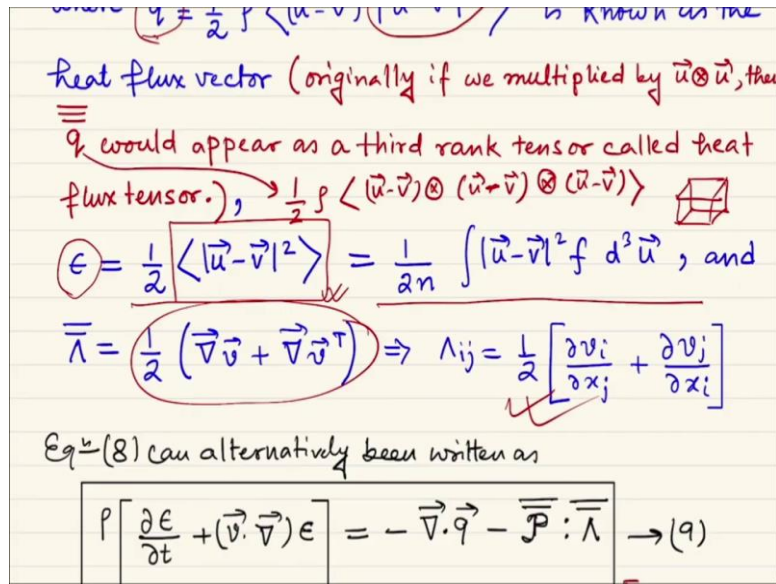 q⃗ = 1/2 ρ ⟨(u⃗-v⃗) |u⃗-v⃗|²⟩ is known as the
heat flux vector (originally if we multiplied by u⃗⊗u⃗, then
q would appear as a third rank tensor called heat
flux tensor.), 1/2 ρ ⟨(u⃗-v⃗)⊗(u⃗-v⃗)⊗(u⃗-v⃗)⟩
ϵ = 1/2 ⟨|u⃗-v⃗|²⟩ = 1/2n ∫|u⃗-v⃗|² f d³u⃗, and
Λ̿ = 1/2 (∇⃗v⃗ + ∇⃗v⃗ᵀ) ⇒ Λij = 1/2 [∂vi/∂xj + ∂vj/∂xi]
Eqⁿ-(8) can alternatively been written as
ρ[∂ϵ/∂t + (v⃗.∇⃗)ϵ] = -∇⃗.q⃗ - P̿ : Λ̿ → (9)